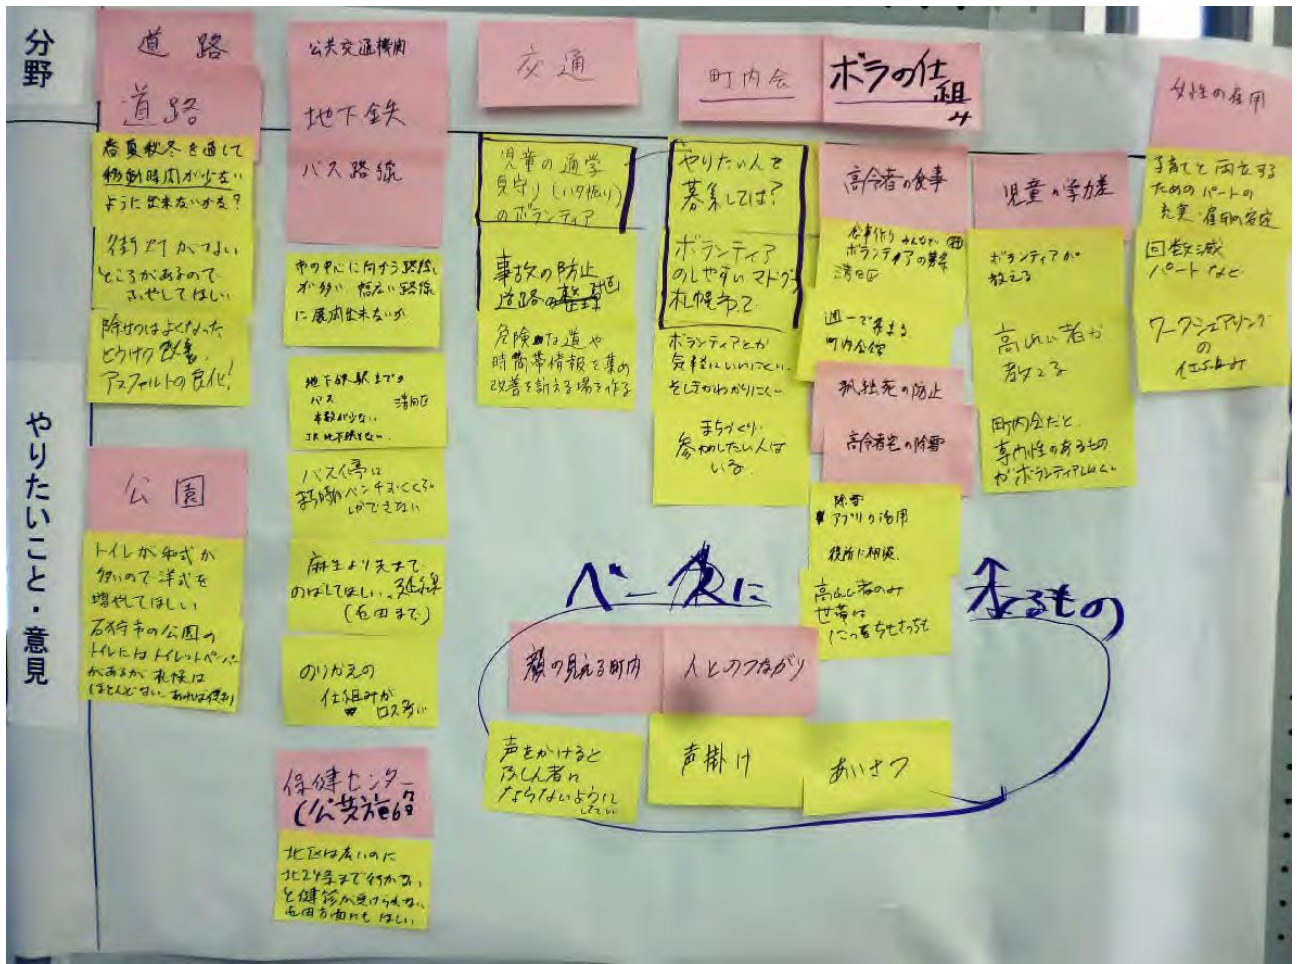 分野
やりたいこと・意見
道路
道路
春夏秋冬を通して
移動時間が少ない
ように出来ないかな?
街灯がつない
ところがあるので
ふやしてほしい
除せつはよくなった
アスファルトの劣化!
公園
トイレが和式が
多いので洋式を
増やしてほしい
石狩市の公園の
トイレにはトイレットペーパー
があるが札幌は
ほとんどない、あれば便利
公共交通機関
地下鉄
バス路線
市の中心に向かう路線
が多い 幅広い路線
に展開出来ないか
地下鉄駅までの
バス 清田区
本数が少ない
JR地下鉄もない
バス停に
麻生より先まで
のばしてほしい、延線
(屯田まで)
のりかえの
仕組みが
ロス多い
保健センター
(公共施設
北区は広いのに
北24条まで行かない
と健診が受けられない
屯田方面にもほしい
交通
児童の通学
見守り
のボランティア
事故の防止
道路の
危険な道や
時間帯情報を集め
改善を訴える場を作る
町内会
やりたい人を
募集しては?
ボランティア
のしやすいマドグチ
札幌市で
ボランティアとか
気軽にいいにくい
そしきがわかりにくい
まちづくり
参加したい人は
いる
ボラの仕
組
み
高令者の食事
食事作り みんなで
ボランティアの募集
清田区
週一で集まる
町内会館
孤独死の防止
高令者宅の除雪
除雪
アプリの活用
役所に相談
高れい者のみ
世帯は
児童の学力差
ボランティアが
教える
高れい者が
教える
町内会だと
専門性のあるもの
がボランティアしにくい
女性の雇用
子育てと両立する
ためのパートの
充実・雇用の安定
回数減
パートなど
ワークシェアリング
の
仕組み
ベースに
なるもの
顔の見える町内
人とのつながり
声をかけると
ふしん者に
ならないように
してい
声掛け
あいさつ